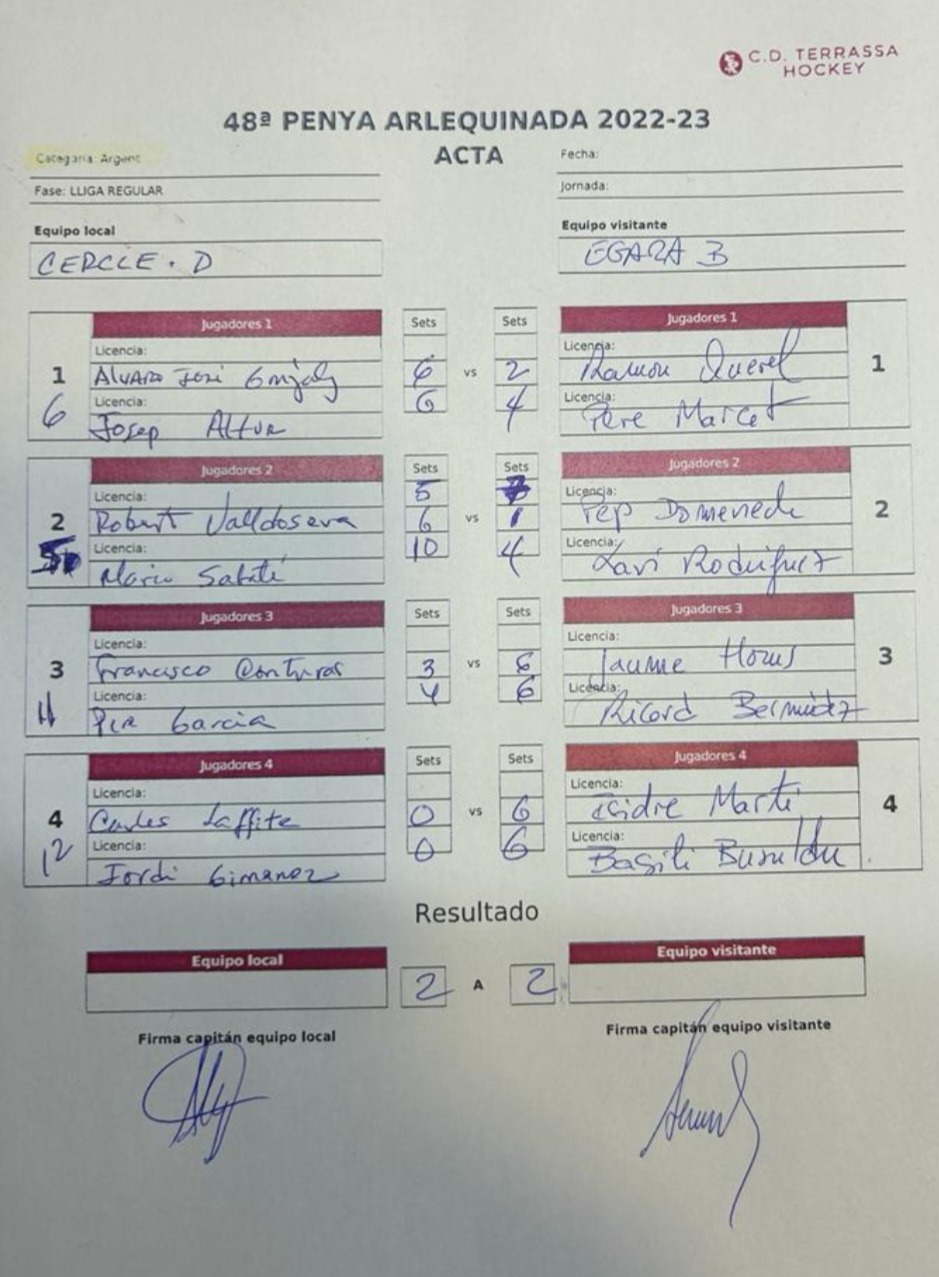 C.D. TERRASSA
HOCKEY
48ª PENYA ARLEQUINADA 2022-23
ACTA
Categoria: Argent
Fecha:
Fase: LLIGA REGULAR
Jornada:
Equipo local
Equipo visitante
CERCLE. D
EGARA B
Jugadores 1 Sets Sets Jugadores 1
Licencia: Licencia:
1 Alvaro José 6 vs 2 Ramon Querol 1
6 Licencia: 6 4 Licencia:
Josep Altur Pere Marcet
Jugadores 2 Sets Sets Jugadores 2
Licencia: 5 7 Licencia:
2 Robert Valldosera 6 vs 1 Pep Domenech 2
Licencia: 10 4 Licencia:
Mario Sabaté Xavi Rodriguez
Jugadores 3 Sets Sets Jugadores 3
Licencia: Licencia:
3 Francisco Contreras 3 vs 6 Jaume 3
11 Licencia: 4 6 Licencia:
Garcia Ricard Bermudez
Jugadores 4 Sets Sets Jugadores 4
Licencia: Licencia:
4 Carles Laffite 0 vs 6 Isidre Marti 4
12 Licencia: 0 6 Licencia:
Jordi Gimenez Basili
Resultado
Equipo local Equipo visitante
2 A 2
Firma capitán equipo local Firma capitán equipo visitante